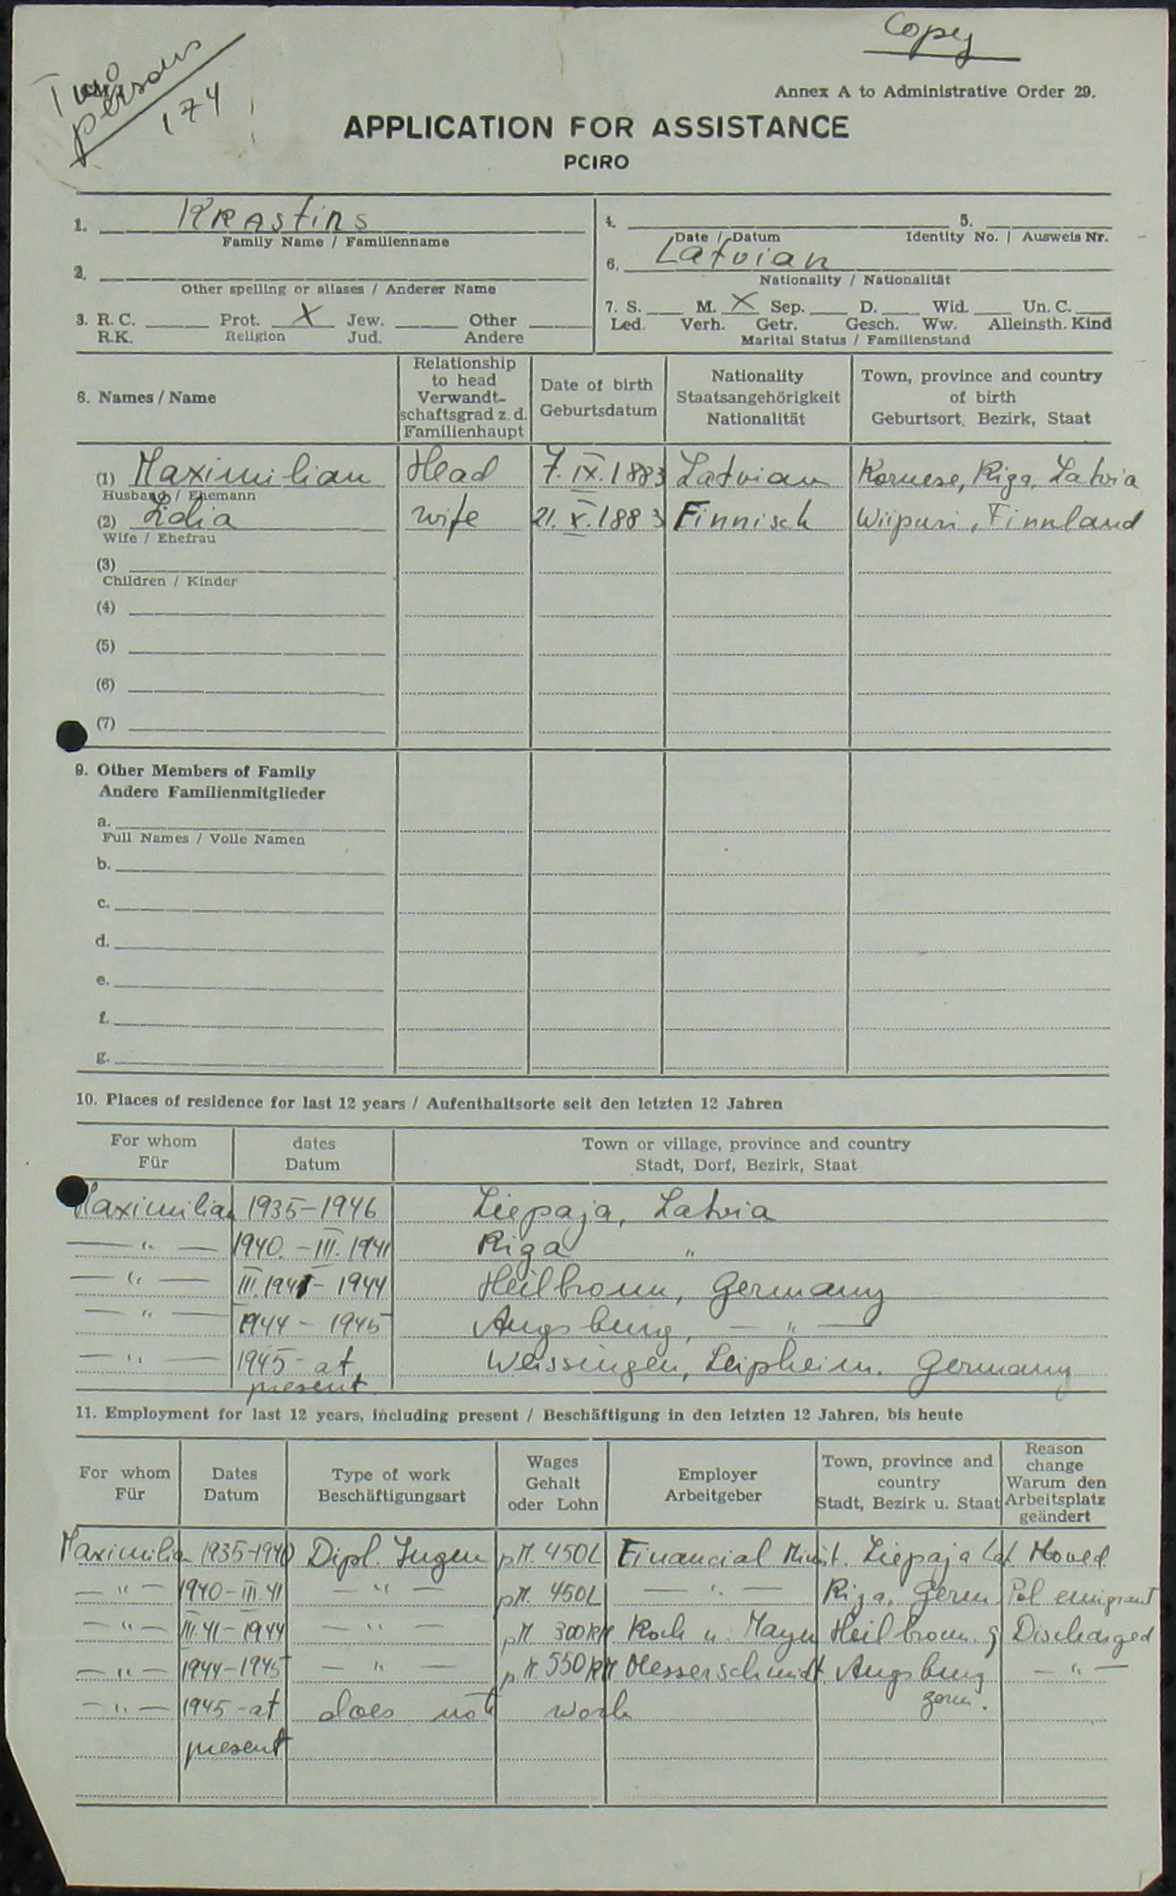 Copy
Two
persons
174
Annex A to Administrative Order 29.
APPLICATION FOR ASSISTANCE
PCIRO
1. Krastins
Family Name / Familienname
2.
Other spelling or aliases / Anderer Name
3. R. C. Prot. X Jew. Other
R.K. Religion Jud. Andere
4. 5.
Date / Datum Identity No. / Ausweis Nr.
6. Latvian
Nationality / Nationalität
7. S. M. X Sep. D. Wid. Un. C.
Led. Verh. Getr. Gesch. Ww. Alleinsth. Kind
Marital Status / Familienstand
8. Names / Name
Relationship
to head
Verwandt-
schaftsgrad z. d.
Familienhaupt
Date of birth
Geburtsdatum
Nationality
Staatsangehörigkeit
Nationalität
Town, province and country
of birth
Geburtsort, Bezirk, Staat
(1) Maximilian Head 7. IX. 1883 Latvian Riga, Latvia
Husband / Ehemann
(2) Lidia wife 21. X. 1883 Finnisch Wiipuri, Finnland
Wife / Ehefrau
(3)
Children / Kinder
(4)
(5)
(6)
(7)
9. Other Members of Family
Andere Familienmitglieder
a.
Full Names / Volle Namen
b.
c.
d.
e.
f.
g.
10. Places of residence for last 12 years / Aufenthaltsorte seit den letzten 12 Jahren
For whom
Für
dates
Datum
Town or village, province and country
Stadt, Dorf, Bezirk, Staat
Maximilian 1935-1946 Liepaja, Latvia
— " — 1940. - III. 1941 Riga "
— " — III. 1941 - 1944 Heilbronn, Germany
— " — 1944 - 1945 Augsburg, — " —
— " — 1945 - at Weissingen, Leipheim. Germany
present
11. Employment for last 12 years, including present / Beschäftigung in den letzten 12 Jahren, bis heute
For whom
Für
Dates
Datum
Type of work
Beschäftigungsart
Wages
Gehalt
oder Lohn
Employer
Arbeitgeber
Town, province and
country
Stadt, Bezirk u. Staat
Reason
change
Warum den
Arbeitsplatz
geändert
Maximilia 1935-1940 Dipl. Ingen pM. 450L Financial Minist. Liepaja Lat Moved
— " — 1940-III.41 — " — pM. 450L — " — Riga, Germ. Pol emigrant
— " — III.41-1944 — " — pM 300RM Koch u. Mayer Heilbronn. g Discharged
— " — 1944-1945 — " — pM. 550RM Messerschmidt Augsburg — " —
germ.
— " — 1945-at does not work
present